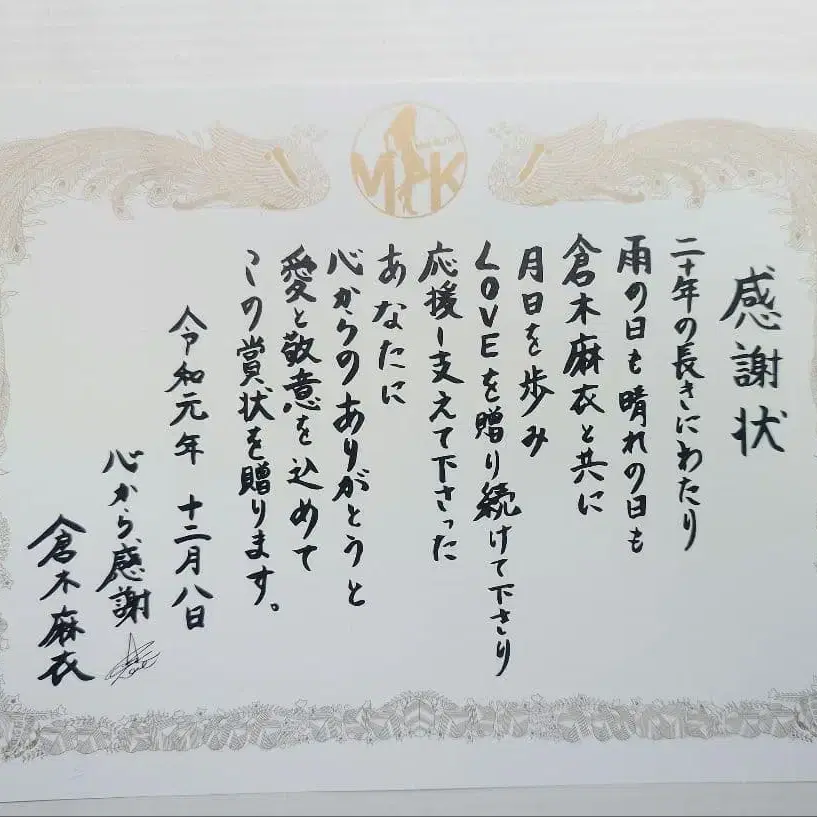 感謝状
二十年の長きにわたり
雨の日も晴れの日も
倉木麻衣と共に
月日を歩み
LOVEを贈り続けて下さり
応援し支えて下さった
あなたに
心からのありがとうと
愛と敬意を込めて
この賞状を贈ります。
令和元年 十二月八日
心から感謝
倉木麻衣
M K